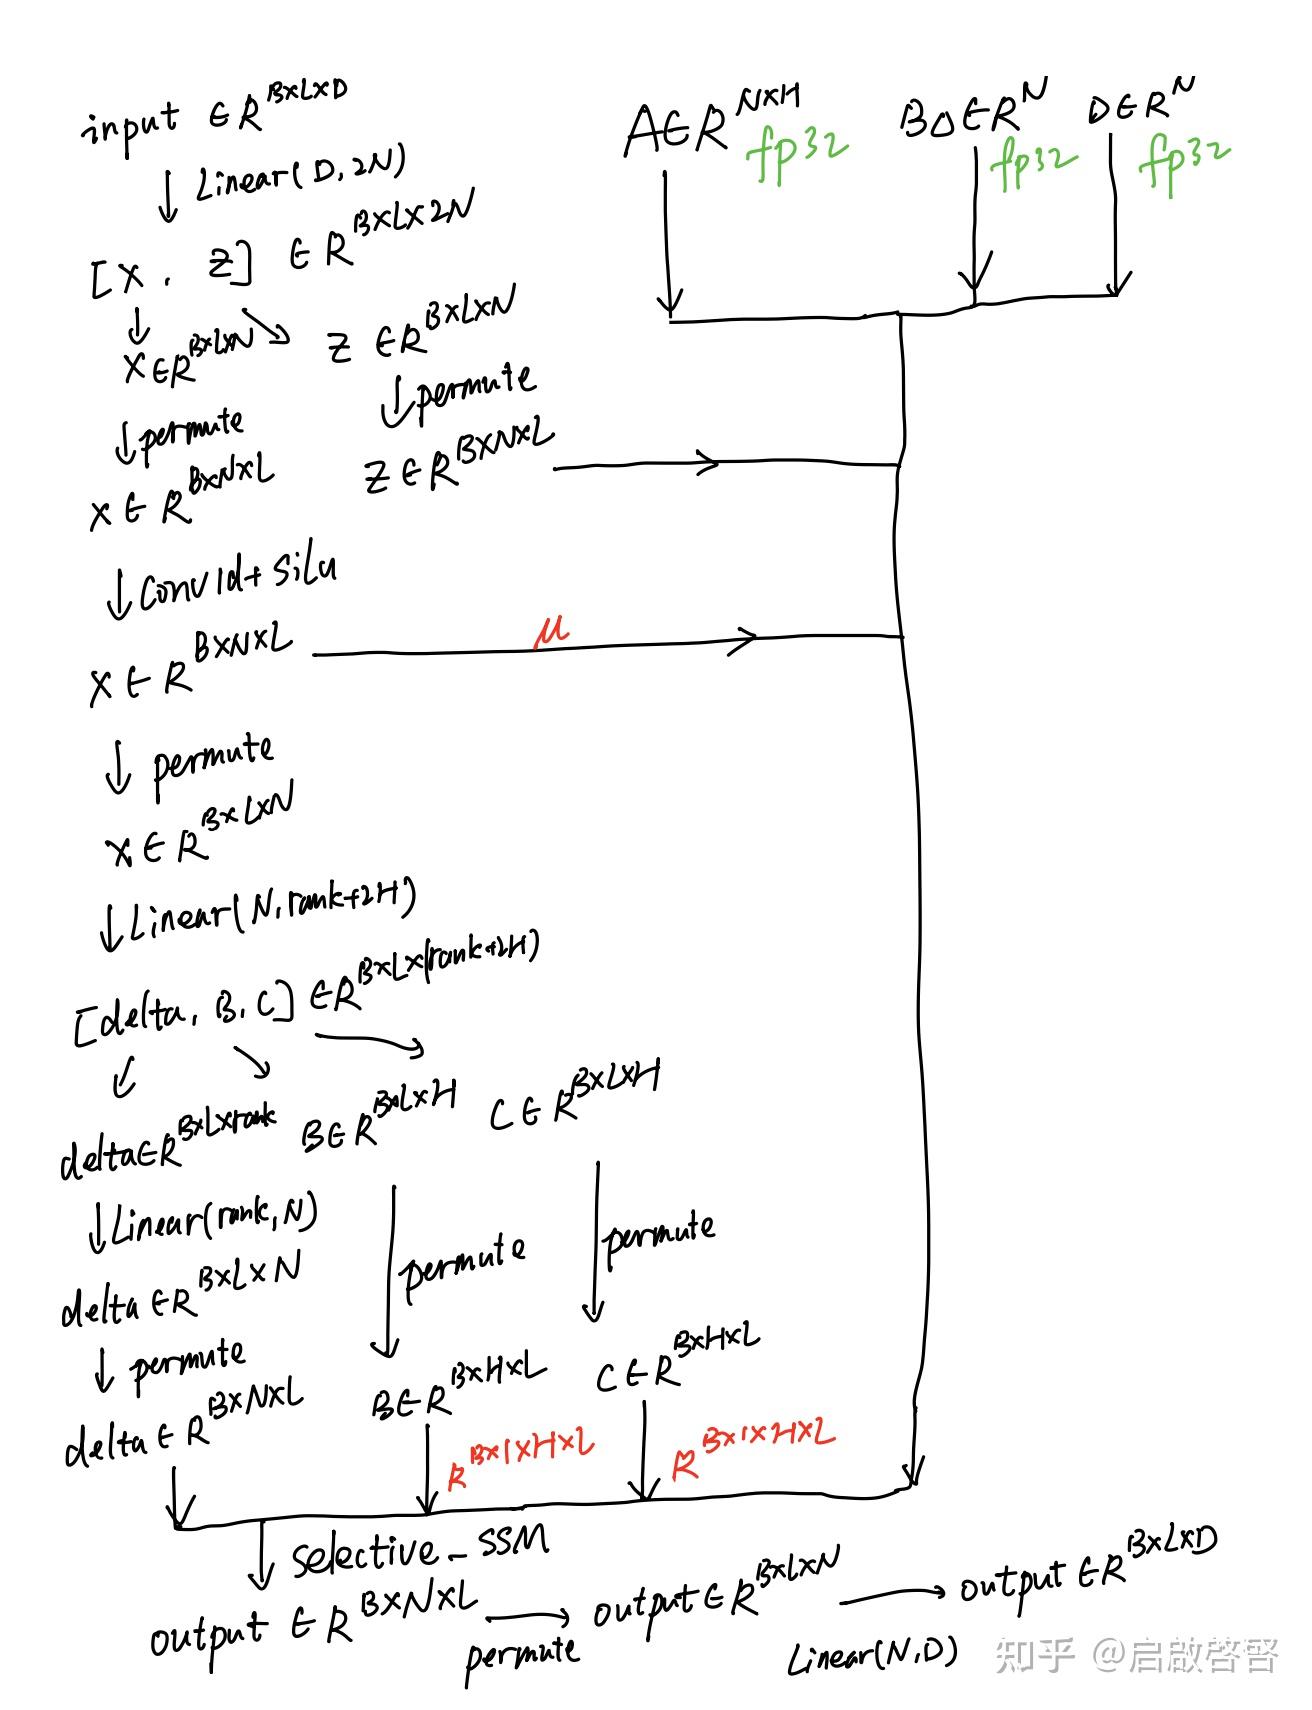 input ∈ R^{B×L×D}
↓ Linear(D, 2N)
[X, Z] ∈ R^{B×L×2N}
X ∈ R^{B×L×N}
Z ∈ R^{B×L×N}
↓ permute
↓ permute
X ∈ R^{B×N×L}
Z ∈ R^{B×N×L}
↓ Conv1d + Silu
X ∈ R^{B×N×L}
μ
↓ permute
X ∈ R^{B×L×N}
↓ Linear(N, rank+2H)
[delta, B, C] ∈ R^{B×L×(rank+2H)}
delta ∈ R^{B×L×rank}
B ∈ R^{B×L×H}
C ∈ R^{B×L×H}
↓ Linear(rank, N)
permute
permute
delta ∈ R^{B×L×N}
↓ permute
delta ∈ R^{B×N×L}
B ∈ R^{B×H×L}
C ∈ R^{B×H×L}
R^{B×1×H×L}
R^{B×1×H×L}
A ∈ R^{N×H}
fp32
B△ ∈ R^N
fp32
D ∈ R^N
fp32
↓ selective_SSM
output ∈ R^{B×N×L}
→ permute
output ∈ R^{B×L×N}
→ Linear(N, D)
output ∈ R^{B×L×D}
知乎 @启啟啓晵